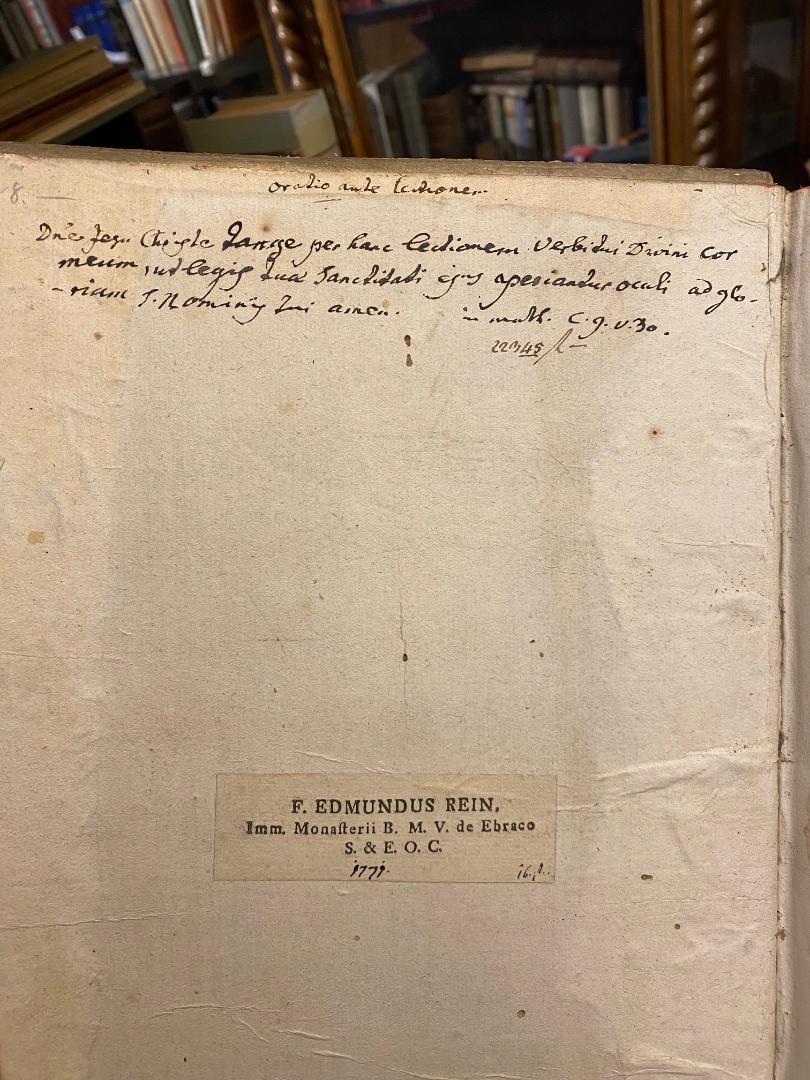 oratio ante lectionem
8.
Dne Jesu Christe tange per hanc lectionem Verbi tui Divini cor
meum, ut legis tuae Sanctitati ejus aperiantur oculi ad glo-
-riam S. Nominis tui amen. in math. C. 9. v. 30.
22345
F. EDMUNDUS REIN,
Imm. Monaſterii B. M. V. de Ebraco
S. & E. O. C.
1771.